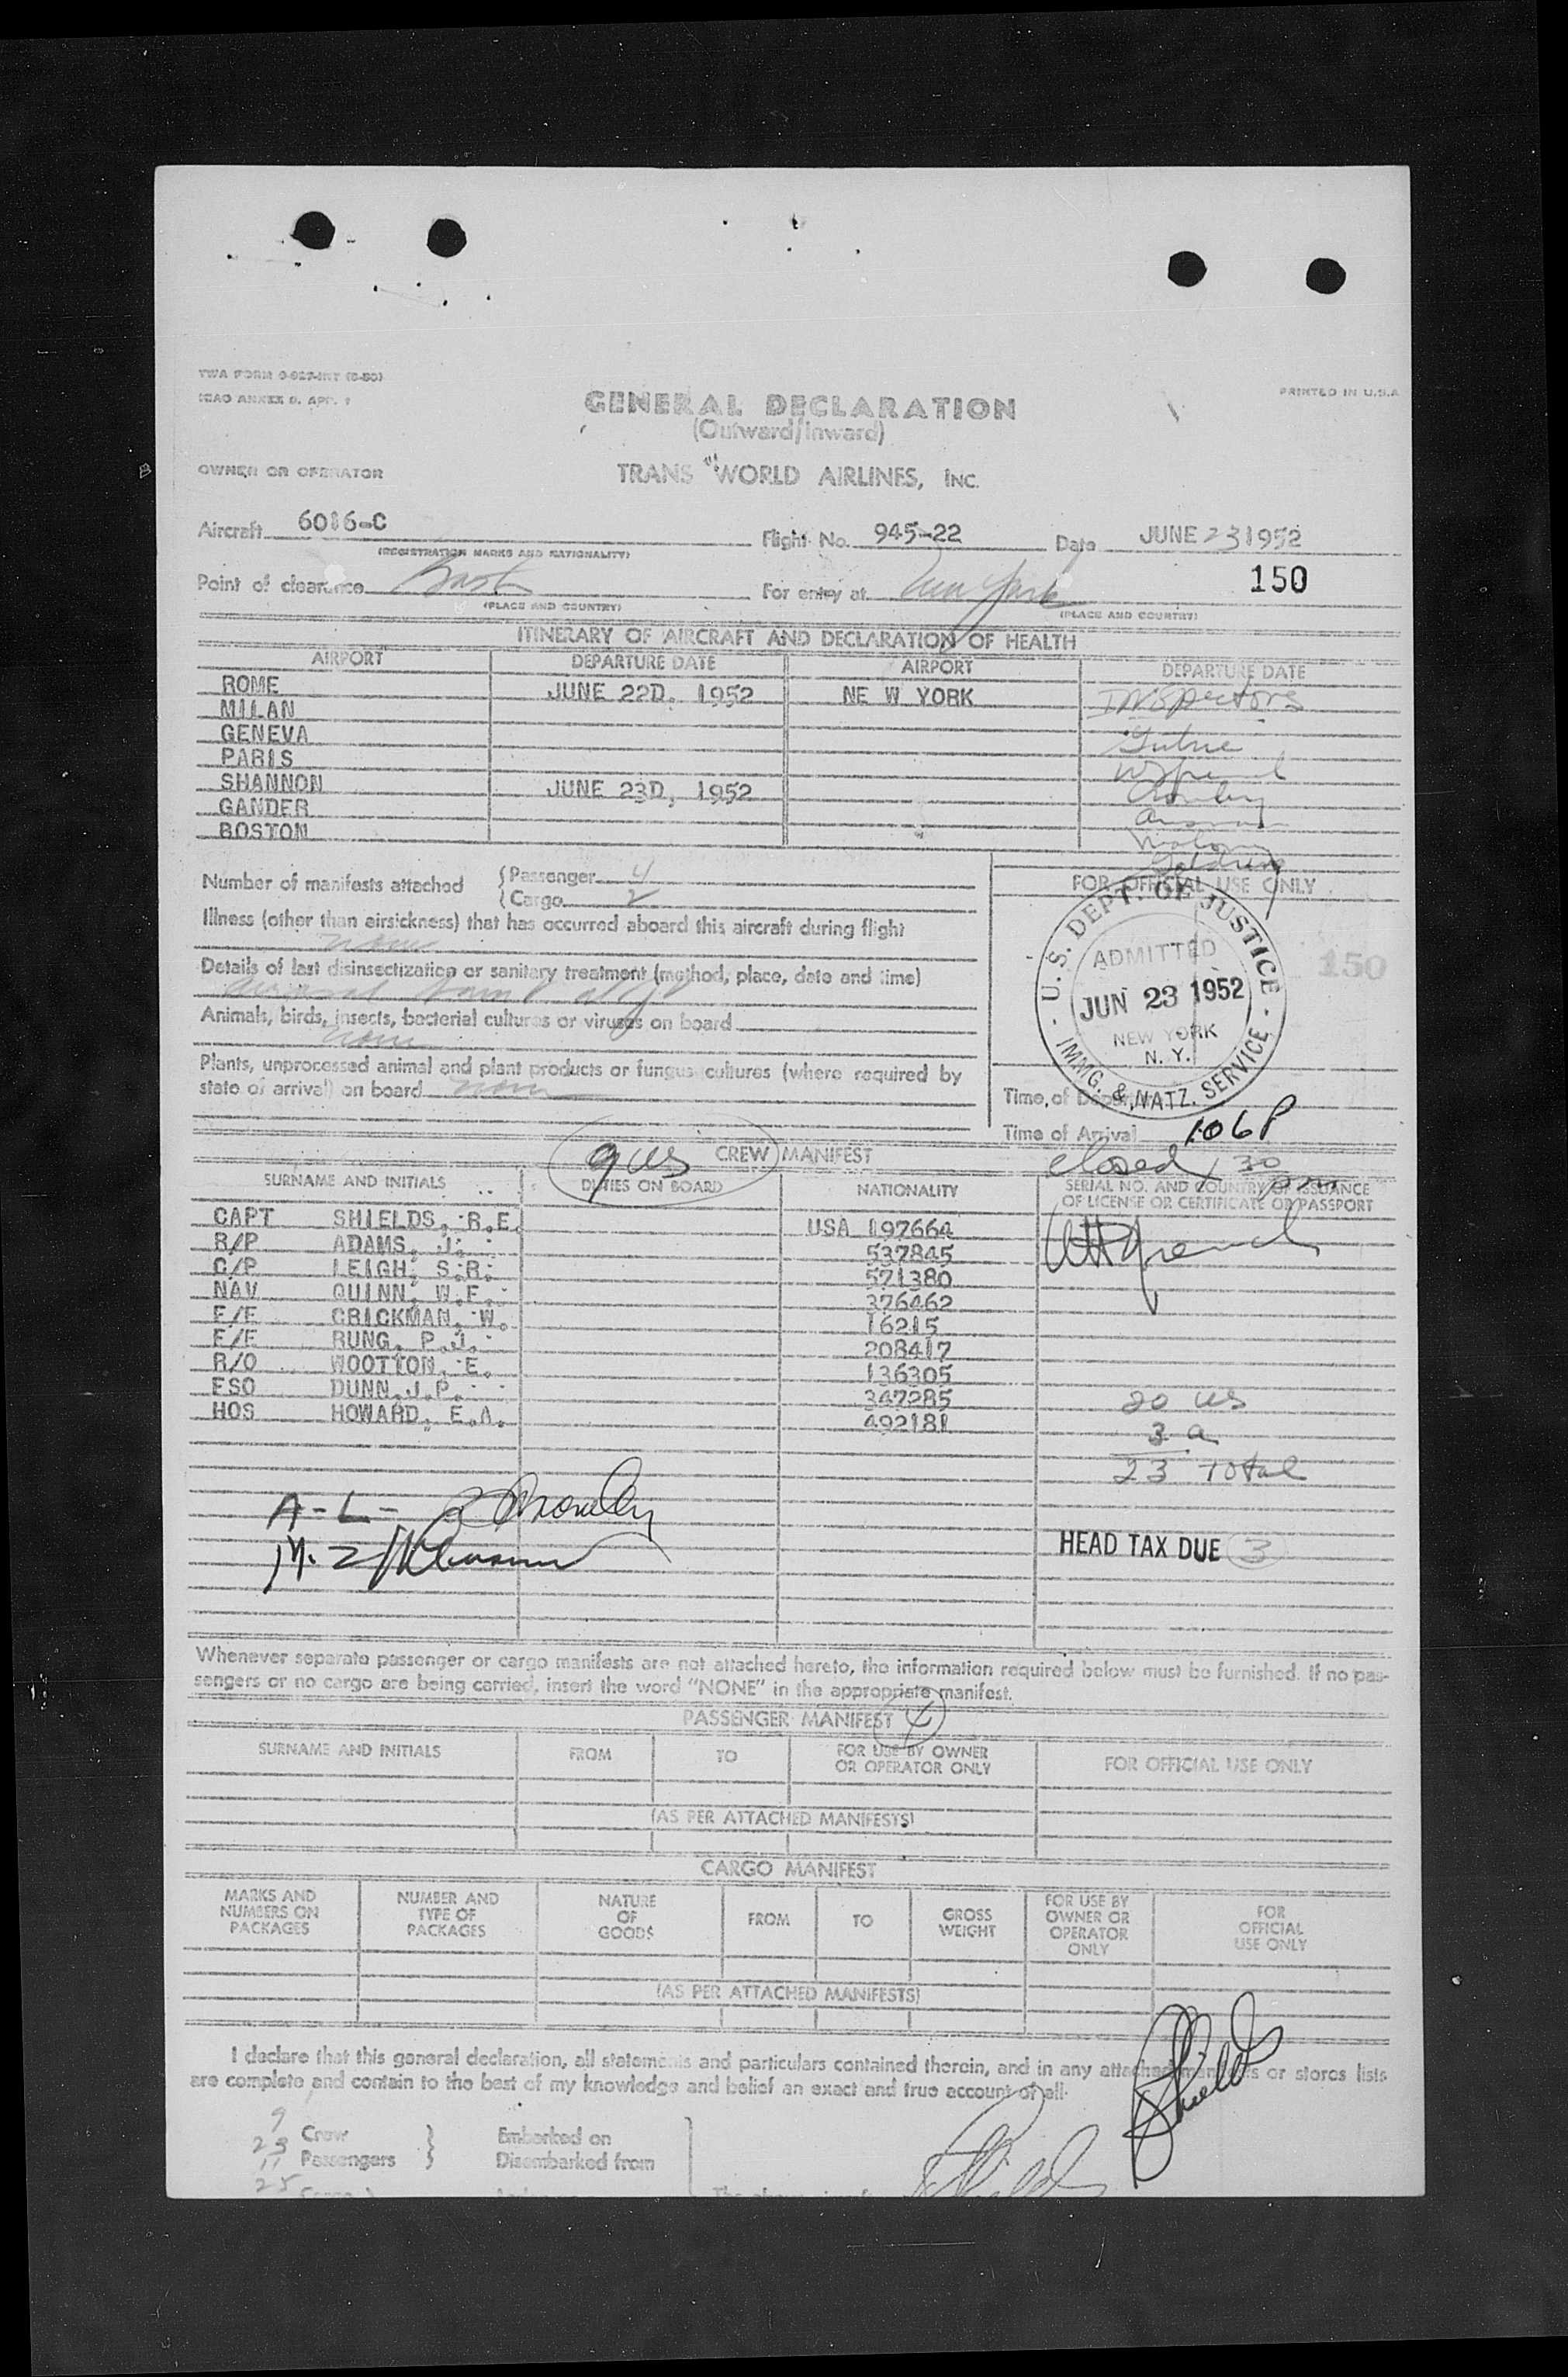 TWA FORM 0-027-INT (5-50)
ICAO ANNEX 9, APP. 1
PRINTED IN U.S.A.
GENERAL DECLARATION
(Outward/Inward)
OWNER OR OPERATOR
TRANS WORLD AIRLINES, INC.
Aircraft 6016-C Flight No. 945-22 Date JUNE 23 1952
(REGISTRATION MARKS AND NATIONALITY)
Point of clearance For entry at New York 150
(PLACE AND COUNTRY) (PLACE AND COUNTRY)
ITINERARY OF AIRCRAFT AND DECLARATION OF HEALTH
AIRPORT DEPARTURE DATE AIRPORT DEPARTURE DATE
ROME JUNE 22D. 1952 NE W YORK Inspectors
MILAN
GENEVA
PARIS
SHANNON JUNE 23D, 1952
GANDER
BOSTON
Number of manifests attached {Passenger 4
{Cargo 2
FOR OFFICIAL USE ONLY
Illness (other than airsickness) that has occurred aboard this aircraft during flight
none
Details of last disinsectization or sanitary treatment (method, place, date and time)
Animals, birds, insects, bacterial cultures or viruses on board
none
Plants, unprocessed animal and plant products or fungus cultures (where required by
state of arrival) on board none
U.S. DEPT. OF JUSTICE
ADMITTED
JUN 23 1952
NEW YORK
N. Y.
IMMG. & NATZ. SERVICE
150
Time of Depart
Time of Arrival 106P
closed 130 pm
9 US CREW MANIFEST
SURNAME AND INITIALS DUTIES ON BOARD NATIONALITY SERIAL NO. AND COUNTRY OF ISSUANCE
OF LICENSE OR CERTIFICATE OR PASSPORT
CAPT SHIELDS, R.E. USA 197664
R/P ADAMS, J. 537845
C/P LEIGH, S.R. 571380
NAV QUINN, W.E. 376462
F/E CRICKMAN, W. 16215
F/E RUNG, P.J. 208417
R/O WOOTTON, E. 136305
FSO DUNN, J.P. 347285
HOS HOWARD, E.A. 492181
20 US
3 a
23 Total
A-L-
HEAD TAX DUE 3
Whenever separate passenger or cargo manifests are not attached hereto, the information required below must be furnished. If no pas-
sengers or no cargo are being carried, insert the word "NONE" in the appropriate manifest.
PASSENGER MANIFEST 4
SURNAME AND INITIALS FROM TO FOR USE BY OWNER
OR OPERATOR ONLY FOR OFFICIAL USE ONLY
(AS PER ATTACHED MANIFESTS)
CARGO MANIFEST
MARKS AND
NUMBERS ON
PACKAGES NUMBER AND
TYPE OF
PACKAGES NATURE
OF
GOODS FROM TO GROSS
WEIGHT FOR USE BY
OWNER OR
OPERATOR
ONLY FOR
OFFICIAL
USE ONLY
(AS PER ATTACHED MANIFESTS)
I declare that this general declaration, all statements and particulars contained therein, and in any attached manifests or stores lists
are complete and contain to the best of my knowledge and belief an exact and true account of all
9 Crew } Embarked on
23 Passengers } Disembarked from
11
25
Shields
Shields